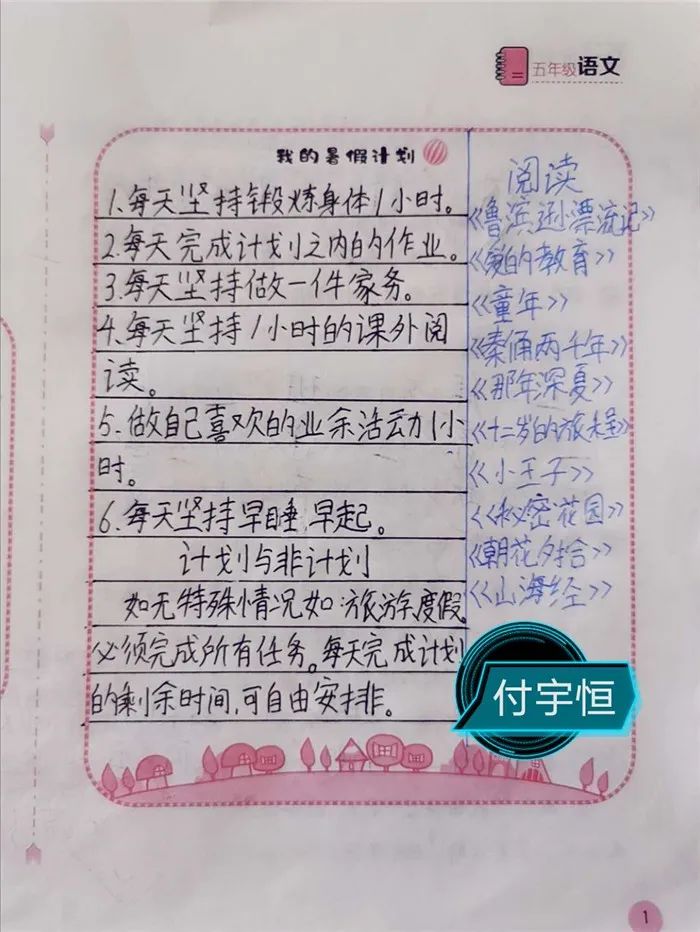 五年级语文
我的暑假计划
1.每天坚持锻炼身体1小时。
2.每天完成计划之内的作业。
3.每天坚持做一件家务。
4.每天坚持1小时的课外阅
读。
5.做自己喜欢的业余活动1小
时。
6.每天坚持早睡早起。
计划与非计划
如无特殊情况如:旅游度假,
必须完成所有任务。每天完成计划
的剩余时间,可自由安排。
阅读
《鲁滨逊漂流记》
《爱的教育》
《童年》
《秦俑两千年》
《那年深夏》
《十二岁的旅程》
《小王子》
《秘密花园》
《朝花夕拾》
《山海经》
付宇恒
1